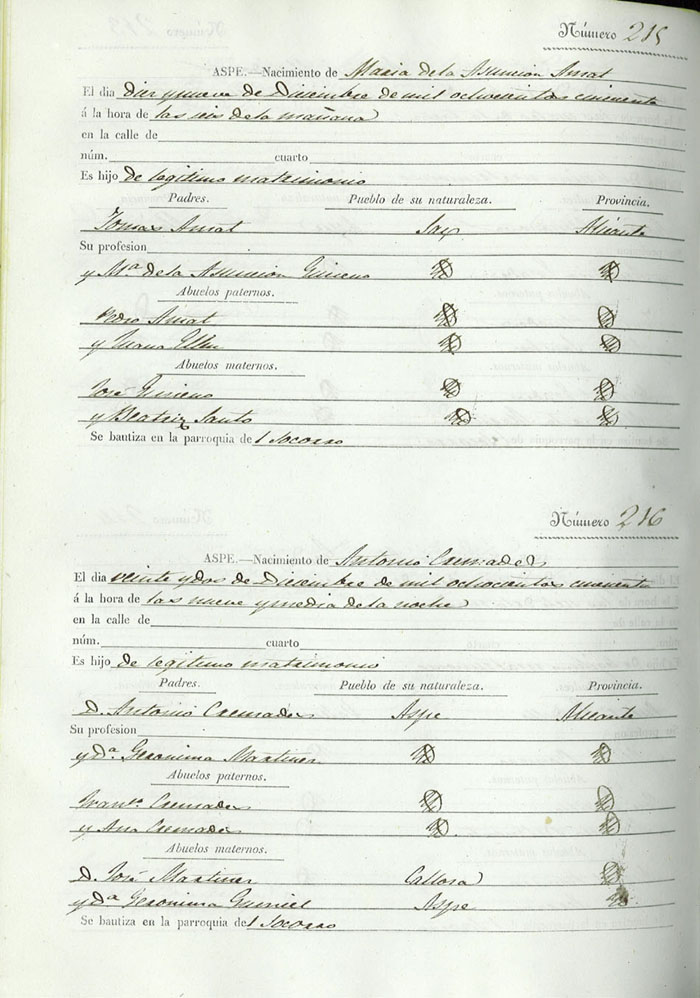 Número 215
ASPE.—Nacimiento de Maria de la Asuncion Amat
El dia diez y nueve de Diciembre de mil ochocientos cincuenta
á la hora de las seis de la mañana
en la calle de
núm. cuarto
Es hijo de legitimo matrimonio
Padres. Pueblo de su naturaleza. Provincia.
Tomas Amat Sax Alicante
Su profesion
y Mª de la Asuncion Gimeno
Abuelos paternos.
Pedro Amat
y Maria
Abuelos maternos.
José Gimeno
y Beatriz Santo
Se bautiza en la parroquia de l Socorro
Número 216
ASPE.—Nacimiento de Antonio Cremades
El dia veinte y dos de Diciembre de mil ochocientos cincuenta
á la hora de las nueve y media de la noche
en la calle de
núm. cuarto
Es hijo de legitimo matrimonio
Padres. Pueblo de su naturaleza. Provincia.
D. Antonio Cremades Aspe Alicante
Su profesion
y Dª. Geronima Martinez
Abuelos paternos.
Cremades
y Ana Cremades
Abuelos maternos.
D. José Martinez Callosa
y Dª Geronima Aspe
Se bautiza en la parroquia de l Socorro